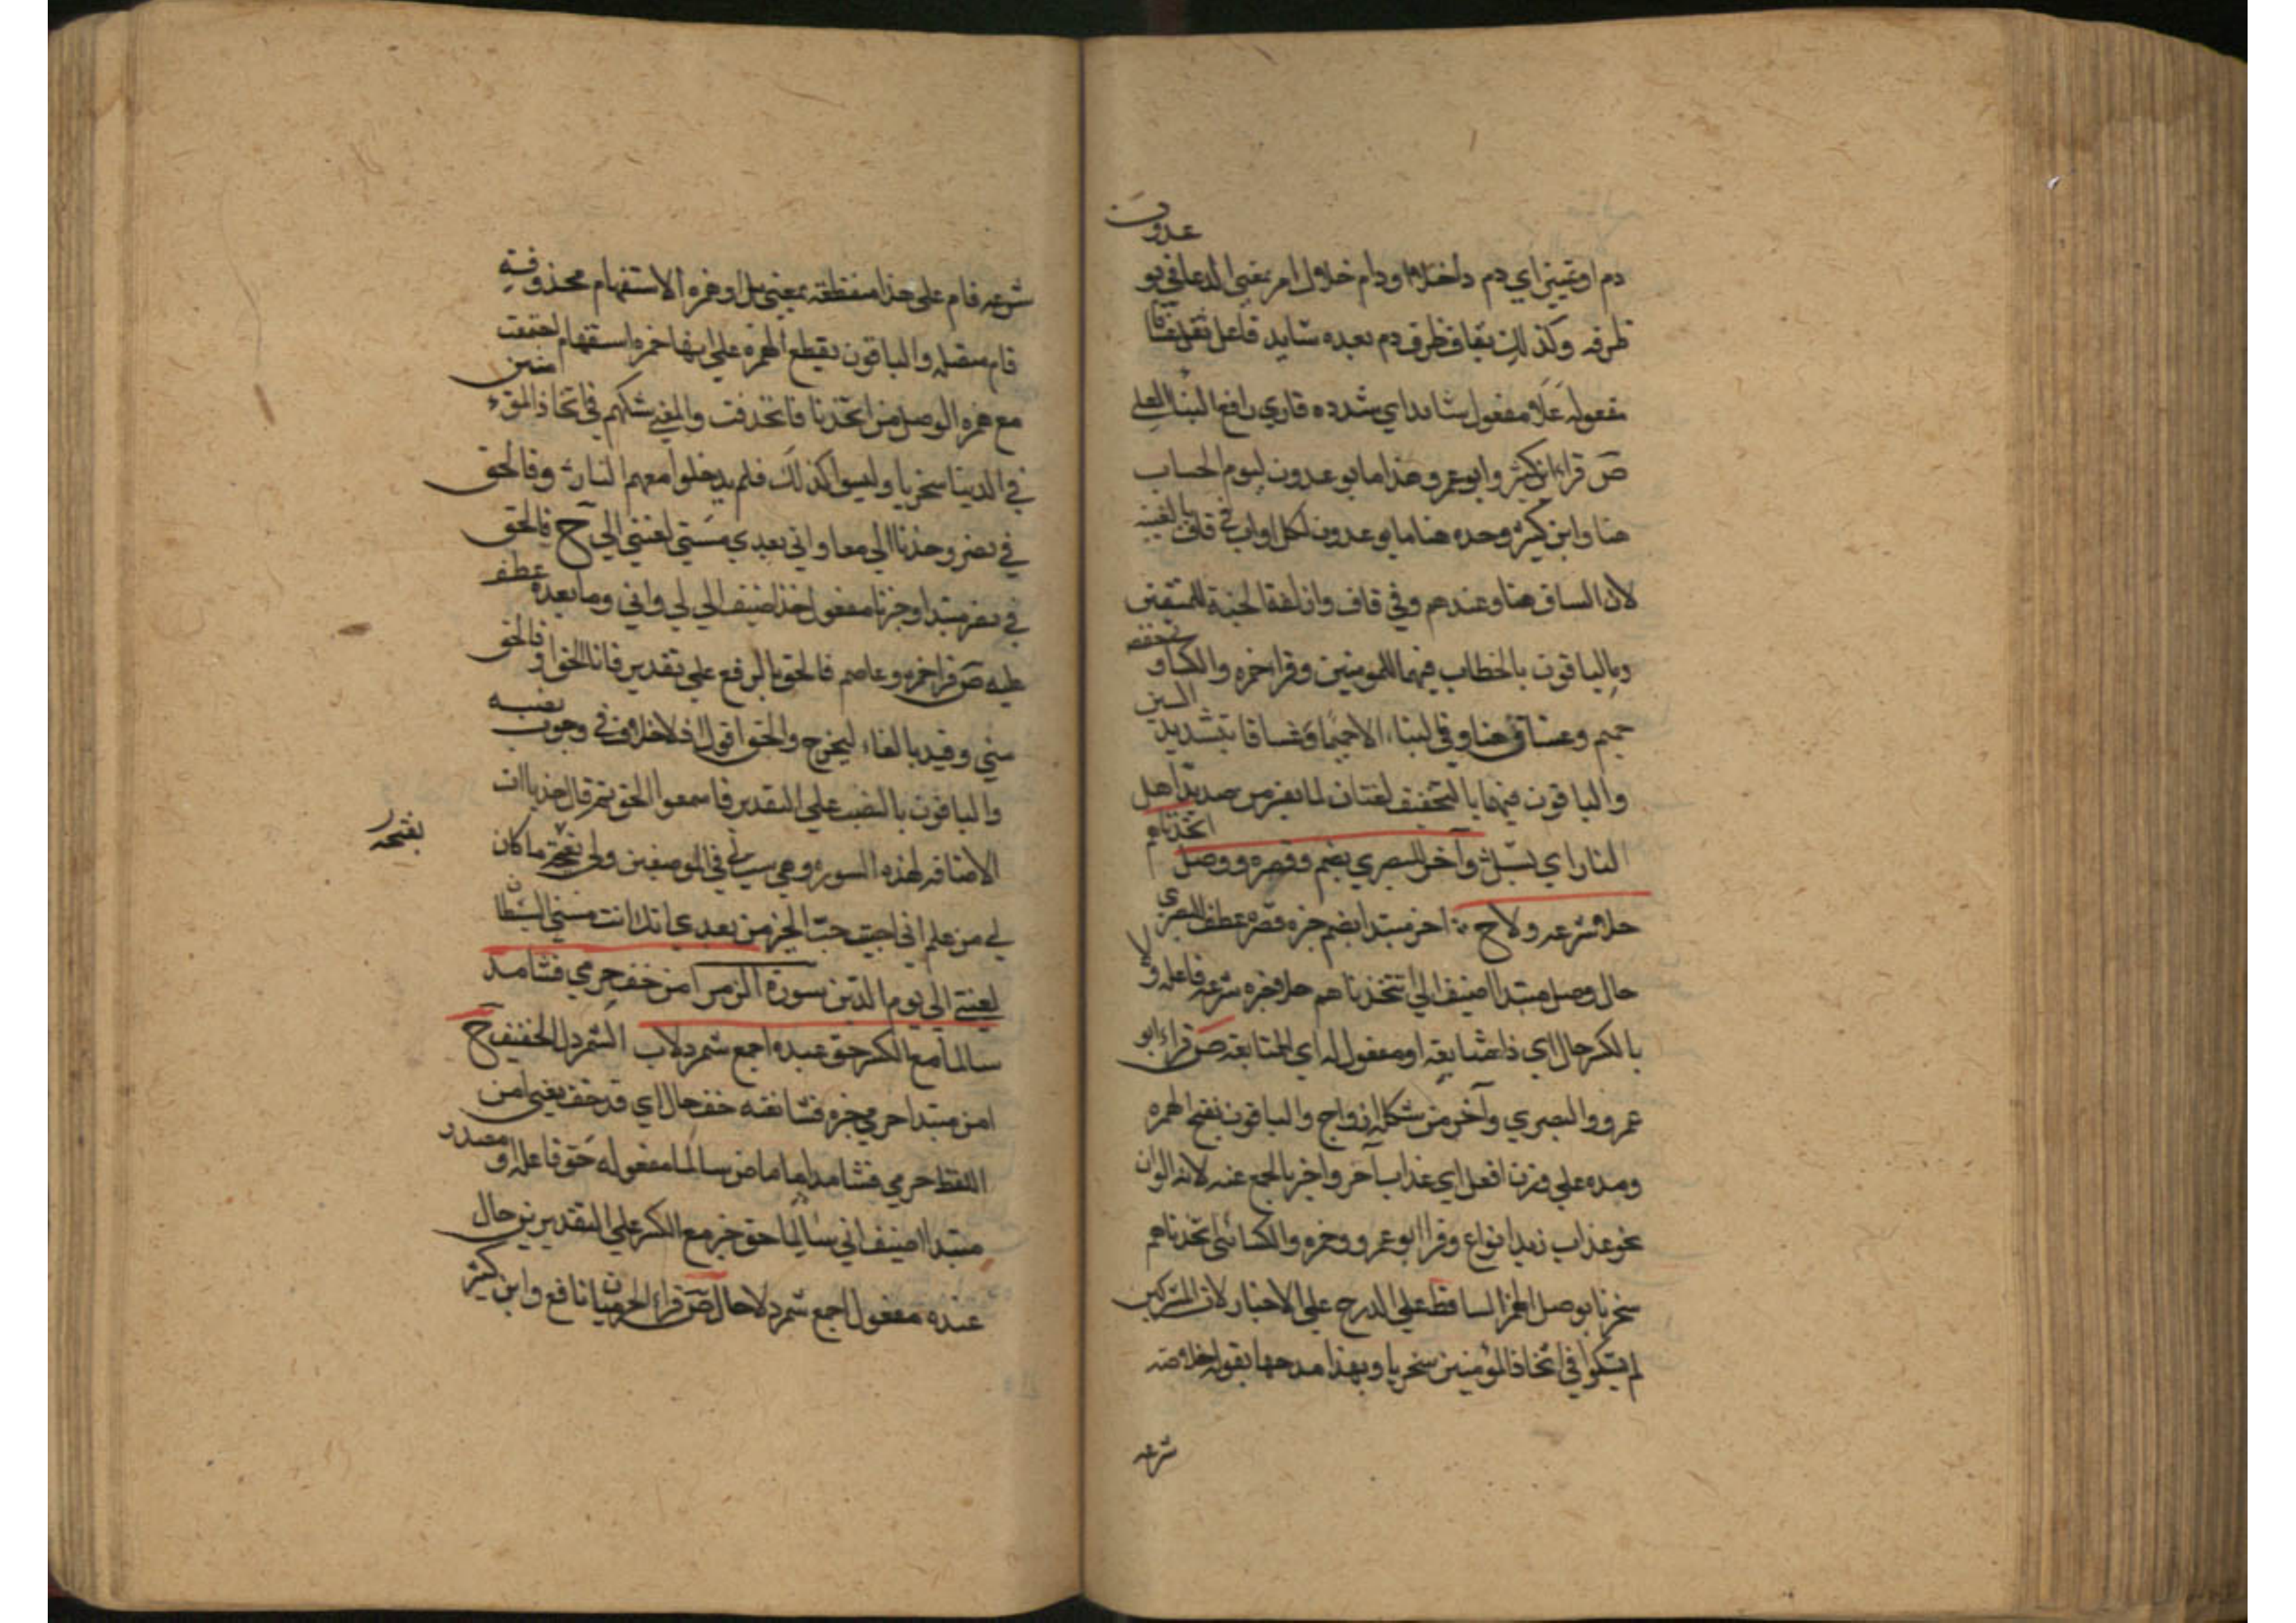 عدون
دم او تميز اي دم داخلا او دام حلا ول امر بمعني الدعا في يو
ظرفه وكذلك بقاف ظرف دم بعده شايد فاعل ثقل غساقا
مفعوله علا مفعول شايد اي شدده قاري رافع البناء العلي
ص قرا ابن كثير وابو عمرو هذا ما يوعدون ليوم الحساب
هنا وابن كثير وحده هنا ما يوعدون لكل اواب في قاف بالغيبة
لان السابق هنا وعندهم وفي قاف وازلفت الجنة للمتقين
والباقون بالخطاب فيهما للمومنين وقرا حمزه والكسا وحفص
حميم وغساق هنا وفي النبا الا حميما وغساقا بتشديد السين
والباقون فيهما بالتخفيف لغتان لما يقر من صديد اهل
النار اي يسيل وآخر للبصري بضم وقصره ووصل اتخذناهم
حلا شرعه ولا ح اخر مبتدا بضم خبره قصره عطف البصري
حال وصل مبتدا اضيف الي اتخذناهم حلا خبره شرعه فاعله ولا
بالكسر حال اي ذا متابعه او مفعول له اي المتابعه ص قراء ابو
عمرو البصري وآخر من شكله ازواج والباقون بفتح الهمزه
ومده علي وزن افعل اي عذاب آخر واخر بالجمع عنه لانه الوان
نحو عذاب زيد انواع وقرا ابو عمرو وحمزه والكسائي اتخذناهم
سخريا بوصل الهمز الساقط علي الدرج علي الاخبار لان المشركين
لم يشكوا في اتخاذ المؤمنين سخريا وبهذا مدحها بقوله حلا صه
شرعه
شرعه فام علي هذا منقطعه بمعني بل او همزه الاستفهام محذوفة
فام متصله والباقون بقطع الهمزه علي انها همزه استفهام اجتمعت
مع همزه الوصل من اتخذنا فانحذفت والمعني شكهم في اتخاذ المؤمنين
في الدنيا سخريا وليسوا كذلك فلم يدخلوا معهم النار وفالحق
في نصر وخذ يا الي معا واني بعدي مسني لعنتي الي ح فالحق
في نصر مبتدا وخبر يا مفعول خذ اضيف الي لي واني وما بعده عطف
عليه ص قرا حمزه وعاصم فالحق بالرفع علي تقدير فانا الحق او فالحق
مني وقيد بالفاء ليخرج والحق اقول اذ لا خلاف في وجوب نصبه
والباقون بالنصب علي التقدير فاسمعوا الحق ثم قال خذ ياات
الاضافه لهذه السوره وهي ست في الموضعين ولي نعجة ما كان
بفتحه
لي من علم اني احببت حب الخير من بعدي انك انت مسني الشيطان
لعنتي الي يوم الدين سورة الزمر امن خف حرمي فشا مد
سالما مع الكسر حق عبده اجمع شمردلا ب الشمردل الخفيف ح
امن مبتدا حرمي خبره فشا نقله خف حال اي قد خف يعني امن
اللفظ حرمي فشا مد اما ماض سالما مفعوله حق فاعله او مصدر
مبتدا اضيف الي سالما حق خبر مع الكسر علي التقديرين حال
عبده مفعول اجمع شمردلا حال ص قراء الحرميان نافع وابن كثير